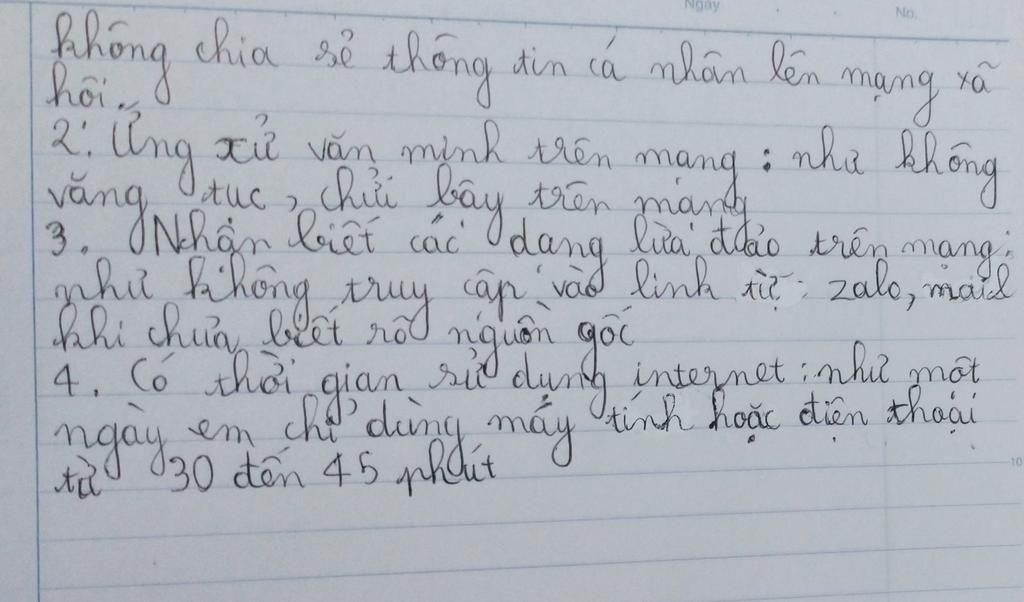 Ngày
No.
không chia sẻ thông tin cá nhân lên mạng xã
hôi.
2. Ứng xử văn minh trên mạng: như không
văng tục, chửi bây trên mạng
3. Nhận biết các dạng lừa đảo trên mạng:
như không truy cập vào link từ: zalo, mail
khi chưa biết rõ nguồn gốc
4. Có thời gian sử dụng internet: như một
ngày em chỉ dùng máy tính hoặc điện thoại
từ 30 đến 45 phút
10